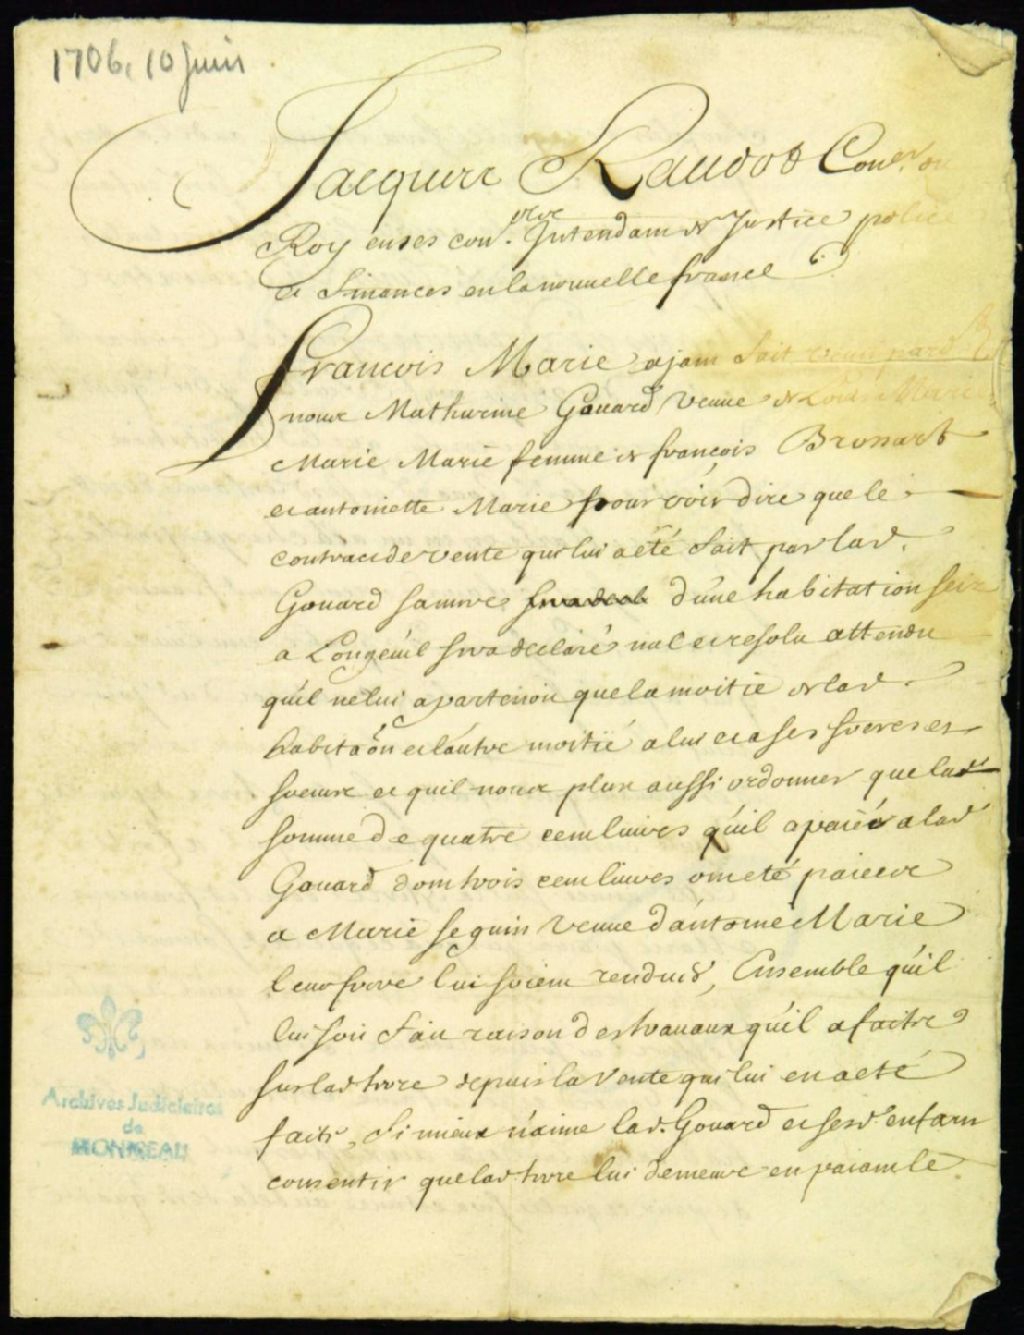 1706, 10 Juin
Jacques Raudot Con.er du
Roy en ses con.rs Intendant de Justice police
et finances en la nouvelle france
francois Marie ajant fait venir pard.
nous Mathurine Gouard veuve de Louis Marie
Marie Marie femme de françois Brossart
et antoinette Marie pour voir dire que le
contract de vente qui lui a été fait par lad.
Gouard sa mere d'une habitation seize
a Longeüil sera declaré nul et resolu attendu
qu'il ne lui apartenoit que la moitié de lad.
habitaõn et l'autre moitié a lui et a ses freres et
soeurs et qu'il nous plut aussi ordonner que lad.
somme de quatre cent livres qu'il a paiée a lad.
Gouard dont trois cent livres ont eté paiees
a Marie seguin veuve d'antoine Marie
leur frere lui soient rendues, Ensemble qu'il
lui soit fait raison des travaux qu'il a faits
sur lad. terre depuis la vente qui lui en a eté
faite, si mieux n'aime lad. Gouard et sesd. enfans
consentir que lad. terre lui demeure en paiant le
Archives Judiciaires
de
MONTREAL